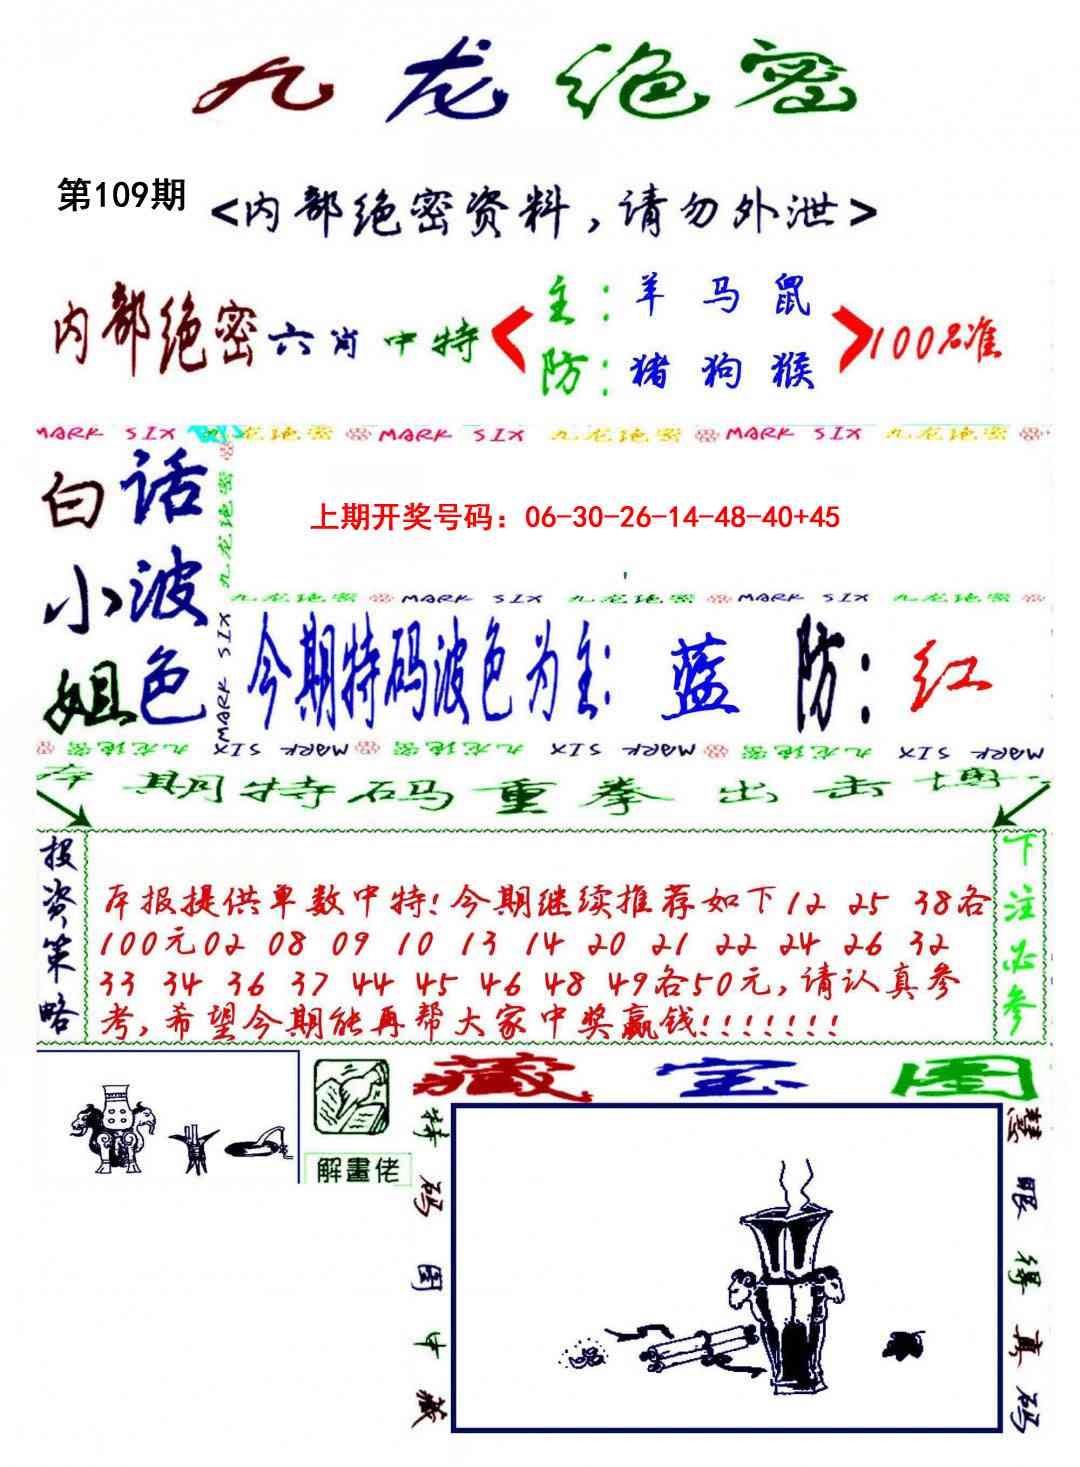 九龙绝密
第109期
<内部绝密资料,请勿外泄>
内部绝密六肖中特
主: 羊 马 鼠
防: 猪 狗 猴
100%准
MARK SIX 九龙绝密 MARK SIX 九龙绝密 MARK SIX 九龙绝密
白话小波姐色
九龙绝密 MARK SIX
上期开奖号码：06-30-26-14-48-40+45
九龙绝密 MARK SIX 九龙绝密 MARK SIX 九龙绝密
今期特码波色为主: 蓝 防: 红
九龙绝密 MARK SIX 九龙绝密 MARK SIX 九龙绝密 MARK SIX
本期特码重拳出击博
投资策略
本报提供单数中特!今期继续推荐如下12 25 38各
100元02 08 09 10 13 14 20 21 22 24 26 32
33 34 36 37 44 45 46 48 49各50元,请认真参
考,希望今期能再帮大家中奖赢钱!!!!!!!
下注必参
解畫佬
藏宝图
特码图中藏
慧眼得真码